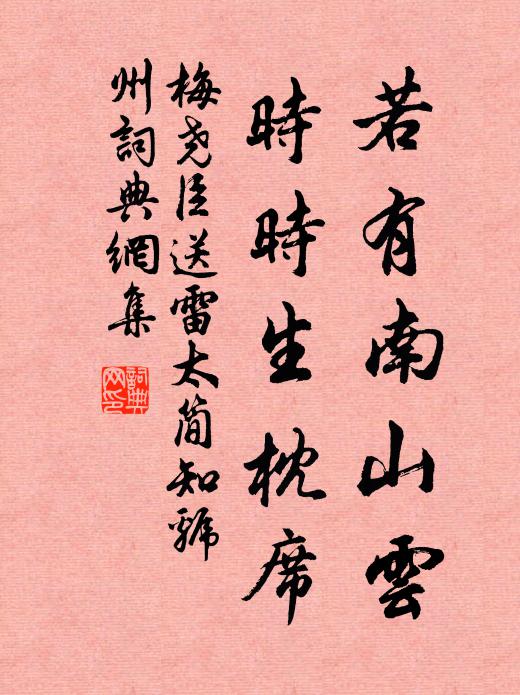 若有南山雲
時時生枕席
梅尧臣送雷太简知虢
州詞典網集
詞典
网印